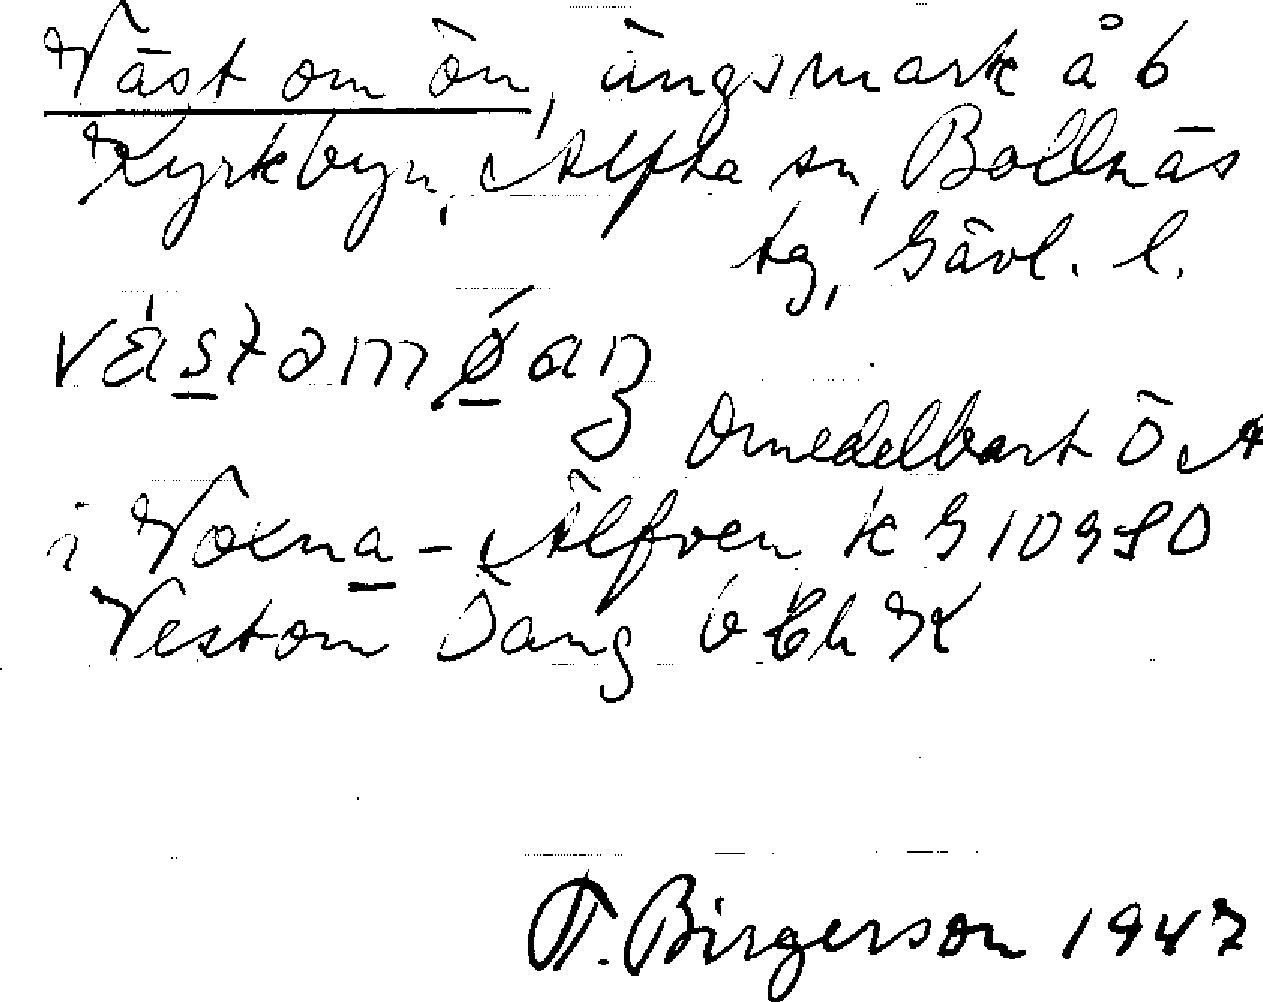 Väst om ön, ängsmark å 6
Kyrkbyn, Alfta sn, Bollnäs
tg, Gävl. l.
Omedelbart Ö A
i Voxna-Älfven k G 10990
Vestom Öang
T. Birgerson 1947